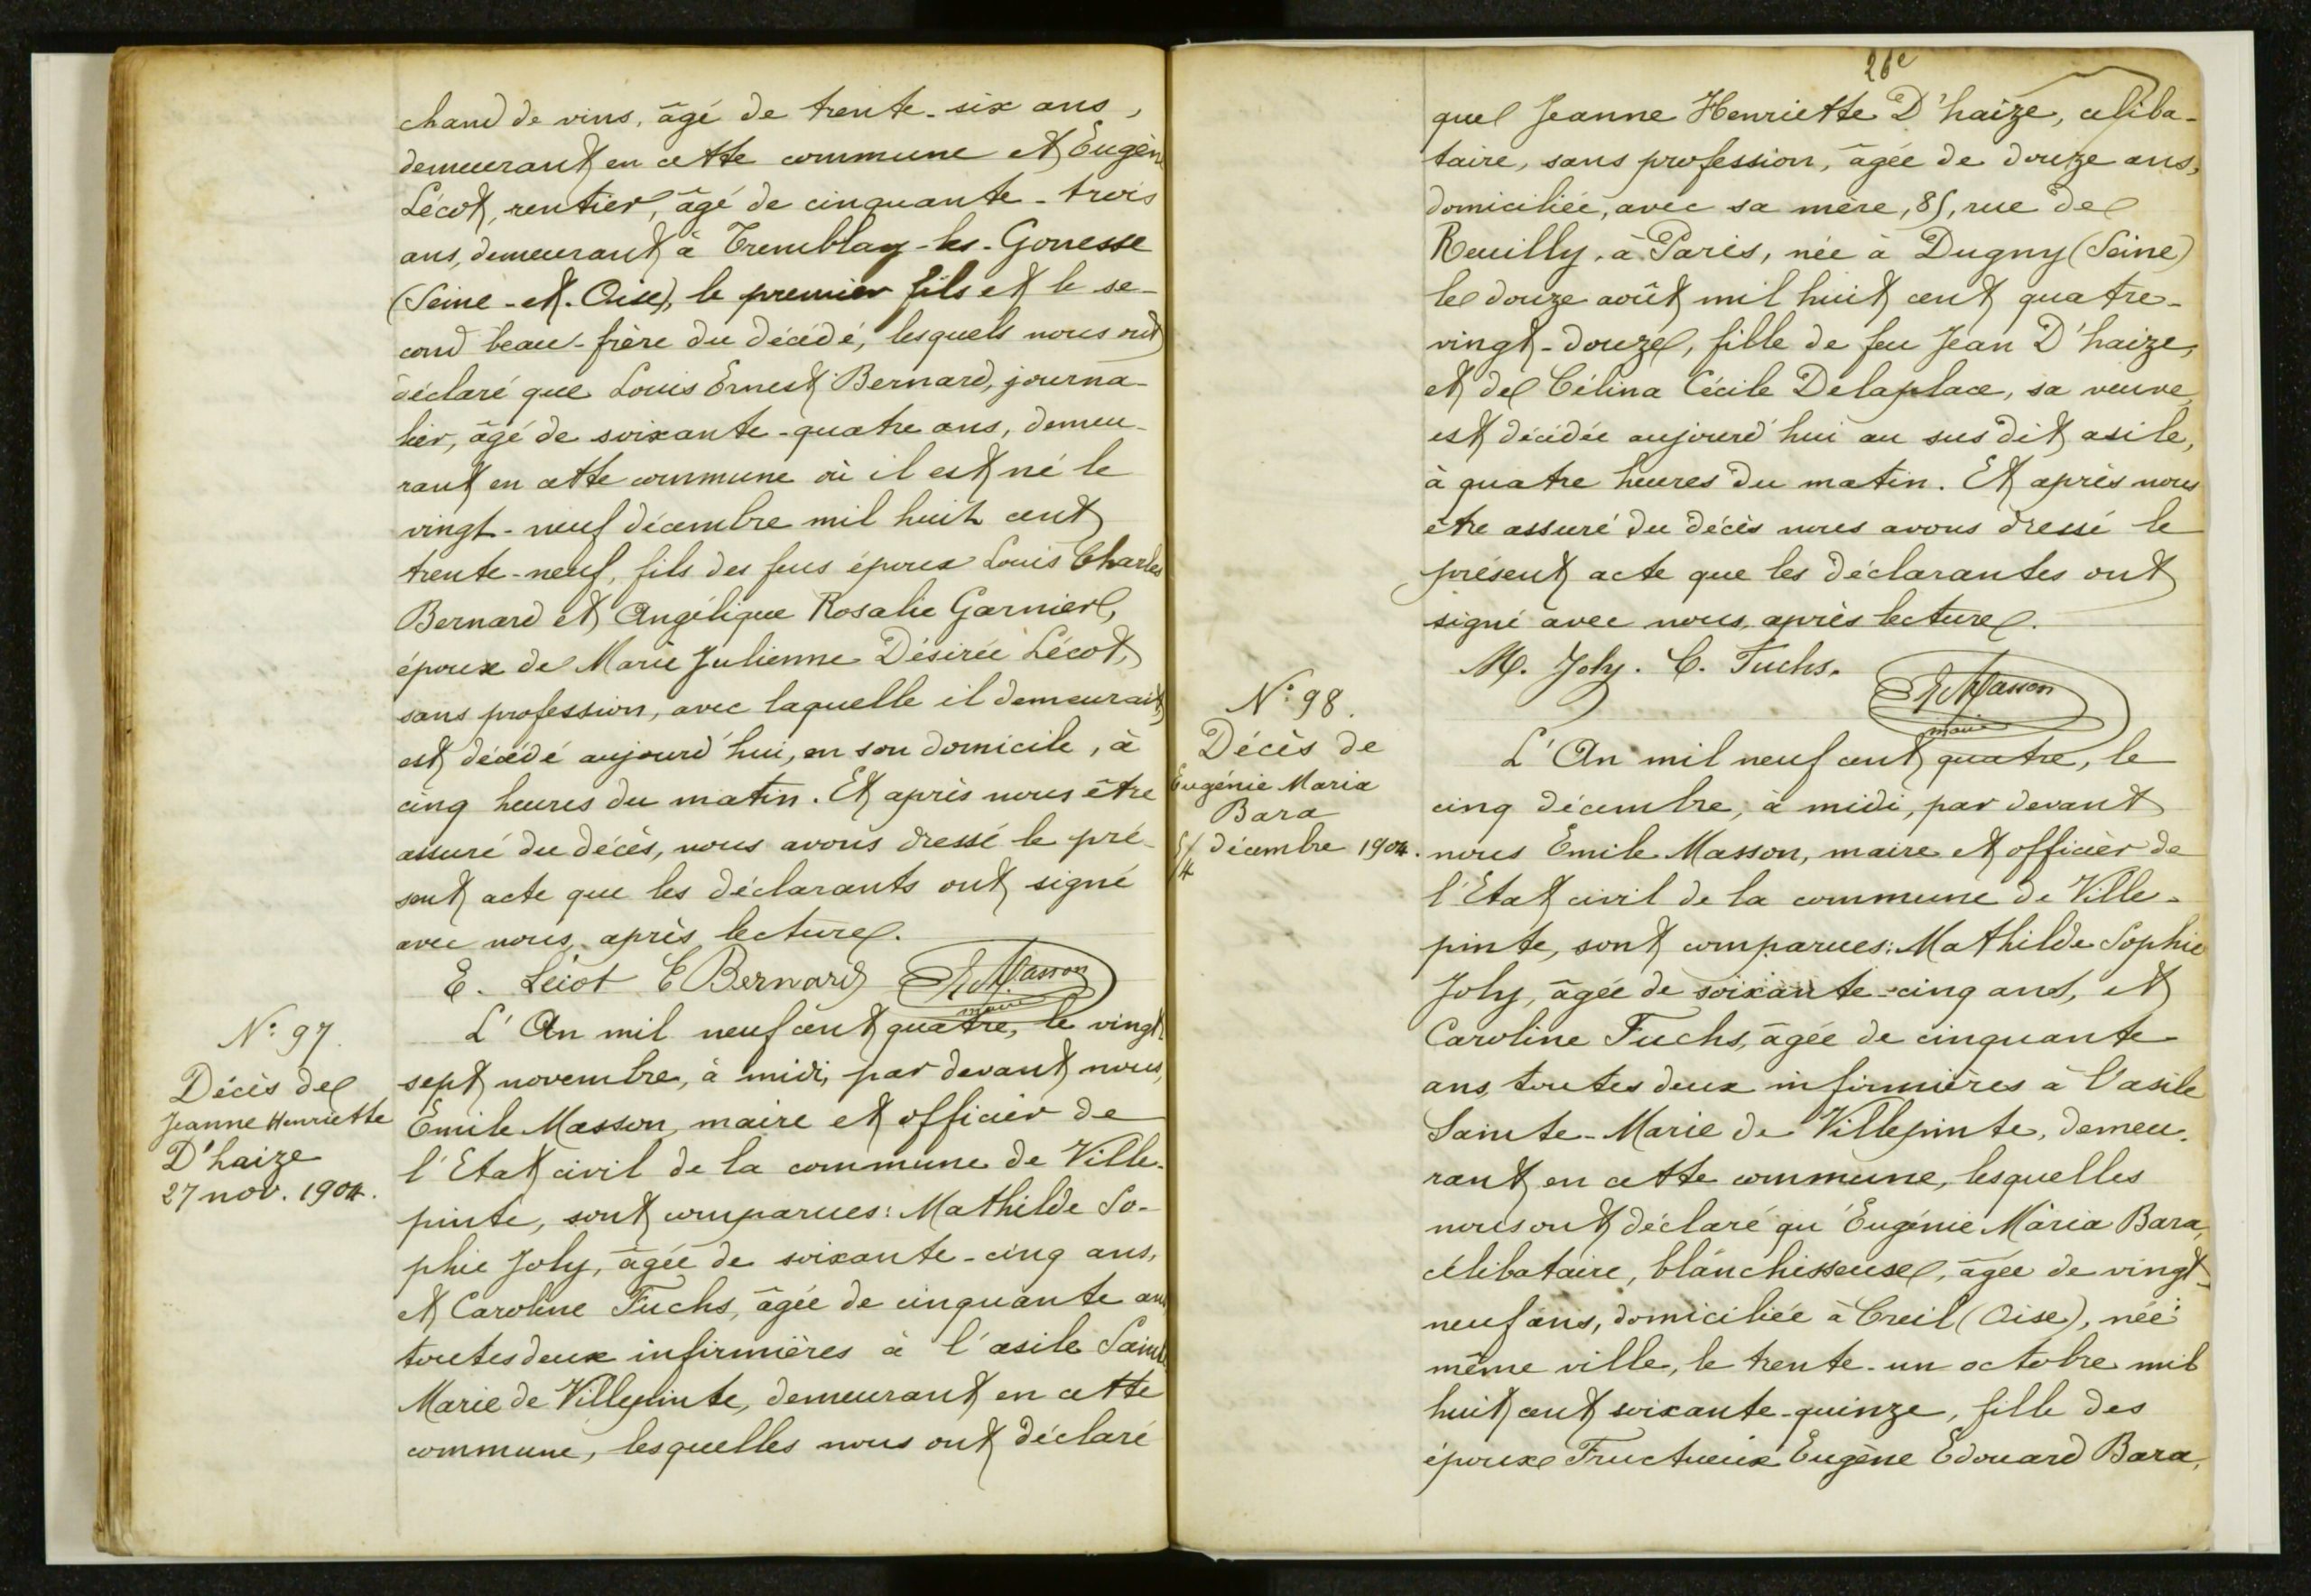 chand de vins, âgé de trente-six ans,
demeurant en cette commune et Eugène
Lécot, rentier, âgé de cinquante-trois
ans, demeurant à Tremblay-les-Gonesse
(Seine-et-Oise), le premier fils et le se-
cond beau-frère du décédé, lesquels nous ont
déclaré que Louis Ernest Bernard, journa-
lier, âgé de soixante-quatre ans, demeu-
rant en cette commune où il est né le
vingt-neuf décembre mil huit cent
trente-neuf, fils des feus époux Louis Charles
Bernard et Angélique Rosalie Garnier,
époux de Marie Julienne Désirée Lécot,
sans profession, avec laquelle il demeurait,
est décédé aujourd'hui, en son domicile, à
cinq heures du matin. Et après nous être
assuré du décès, nous avons dressé le pré-
sent acte que les déclarants ont signé
avec nous, après lecture.
E. Lécot E Bernard E. Masson
maire
N° 97.
Décès de
Jeanne Henriette
D'haize
27 nov. 1904.
L'An mil neuf cent quatre, le vingt
sept novembre, à midi, par devant nous,
Emile Masson, maire et officier de
l'Etat civil de la commune de Ville-
pinte, sont comparues: Mathilde So-
phie Joly, âgée de soixante-cinq ans,
et Caroline Fuchs, âgée de cinquante ans
toutes deux infirmières à l'asile Sainte
Marie de Villepinte, demeurant en cette
commune, lesquelles nous ont déclaré
26e
quel Jeanne Henriette D'haize, céliba-
taire, sans profession, âgée de douze ans,
domiciliée, avec sa mère, 85, rue de
Reuilly, à Paris, née à Dugny (Seine)
le douze août mil huit cent quatre-
vingt-douze, fille de feu Jean D'haize,
et de Célina Cécile Delaplace, sa veuve,
est décédée aujourd'hui au susdit asile,
à quatre heures du matin. Et après nous
être assuré du décès nous avons dressé le
présent acte que les déclarantes ont
signé avec nous, après lecture.
M. Joly. C. Fuchs. E. Masson
maire
N° 98.
Décès de
Eugénie Maria
Bara
5/ décembre 1904.
/4
L'An mil neuf cent quatre, le
cinq décembre, à midi, par devant
nous Emile Masson, maire et officier de
l'Etat civil de la commune de Ville-
pinte, sont comparues: Mathilde Sophie
Joly, âgée de soixante-cinq ans, et
Caroline Fuchs, âgée de cinquante
ans, toutes deux infirmières à l'asile
Sainte-Marie de Villepinte, demeu-
rant en cette commune, lesquelles
nous ont déclaré qu'Eugénie Maria Bara,
célibataire, blanchisseuse, âgée de vingt-
neuf ans, domiciliée à Creil (Oise), née
même ville, le trente-un octobre mil
huit cent soixante-quinze, fille des
époux Fructueux Eugène Edouard Bara,